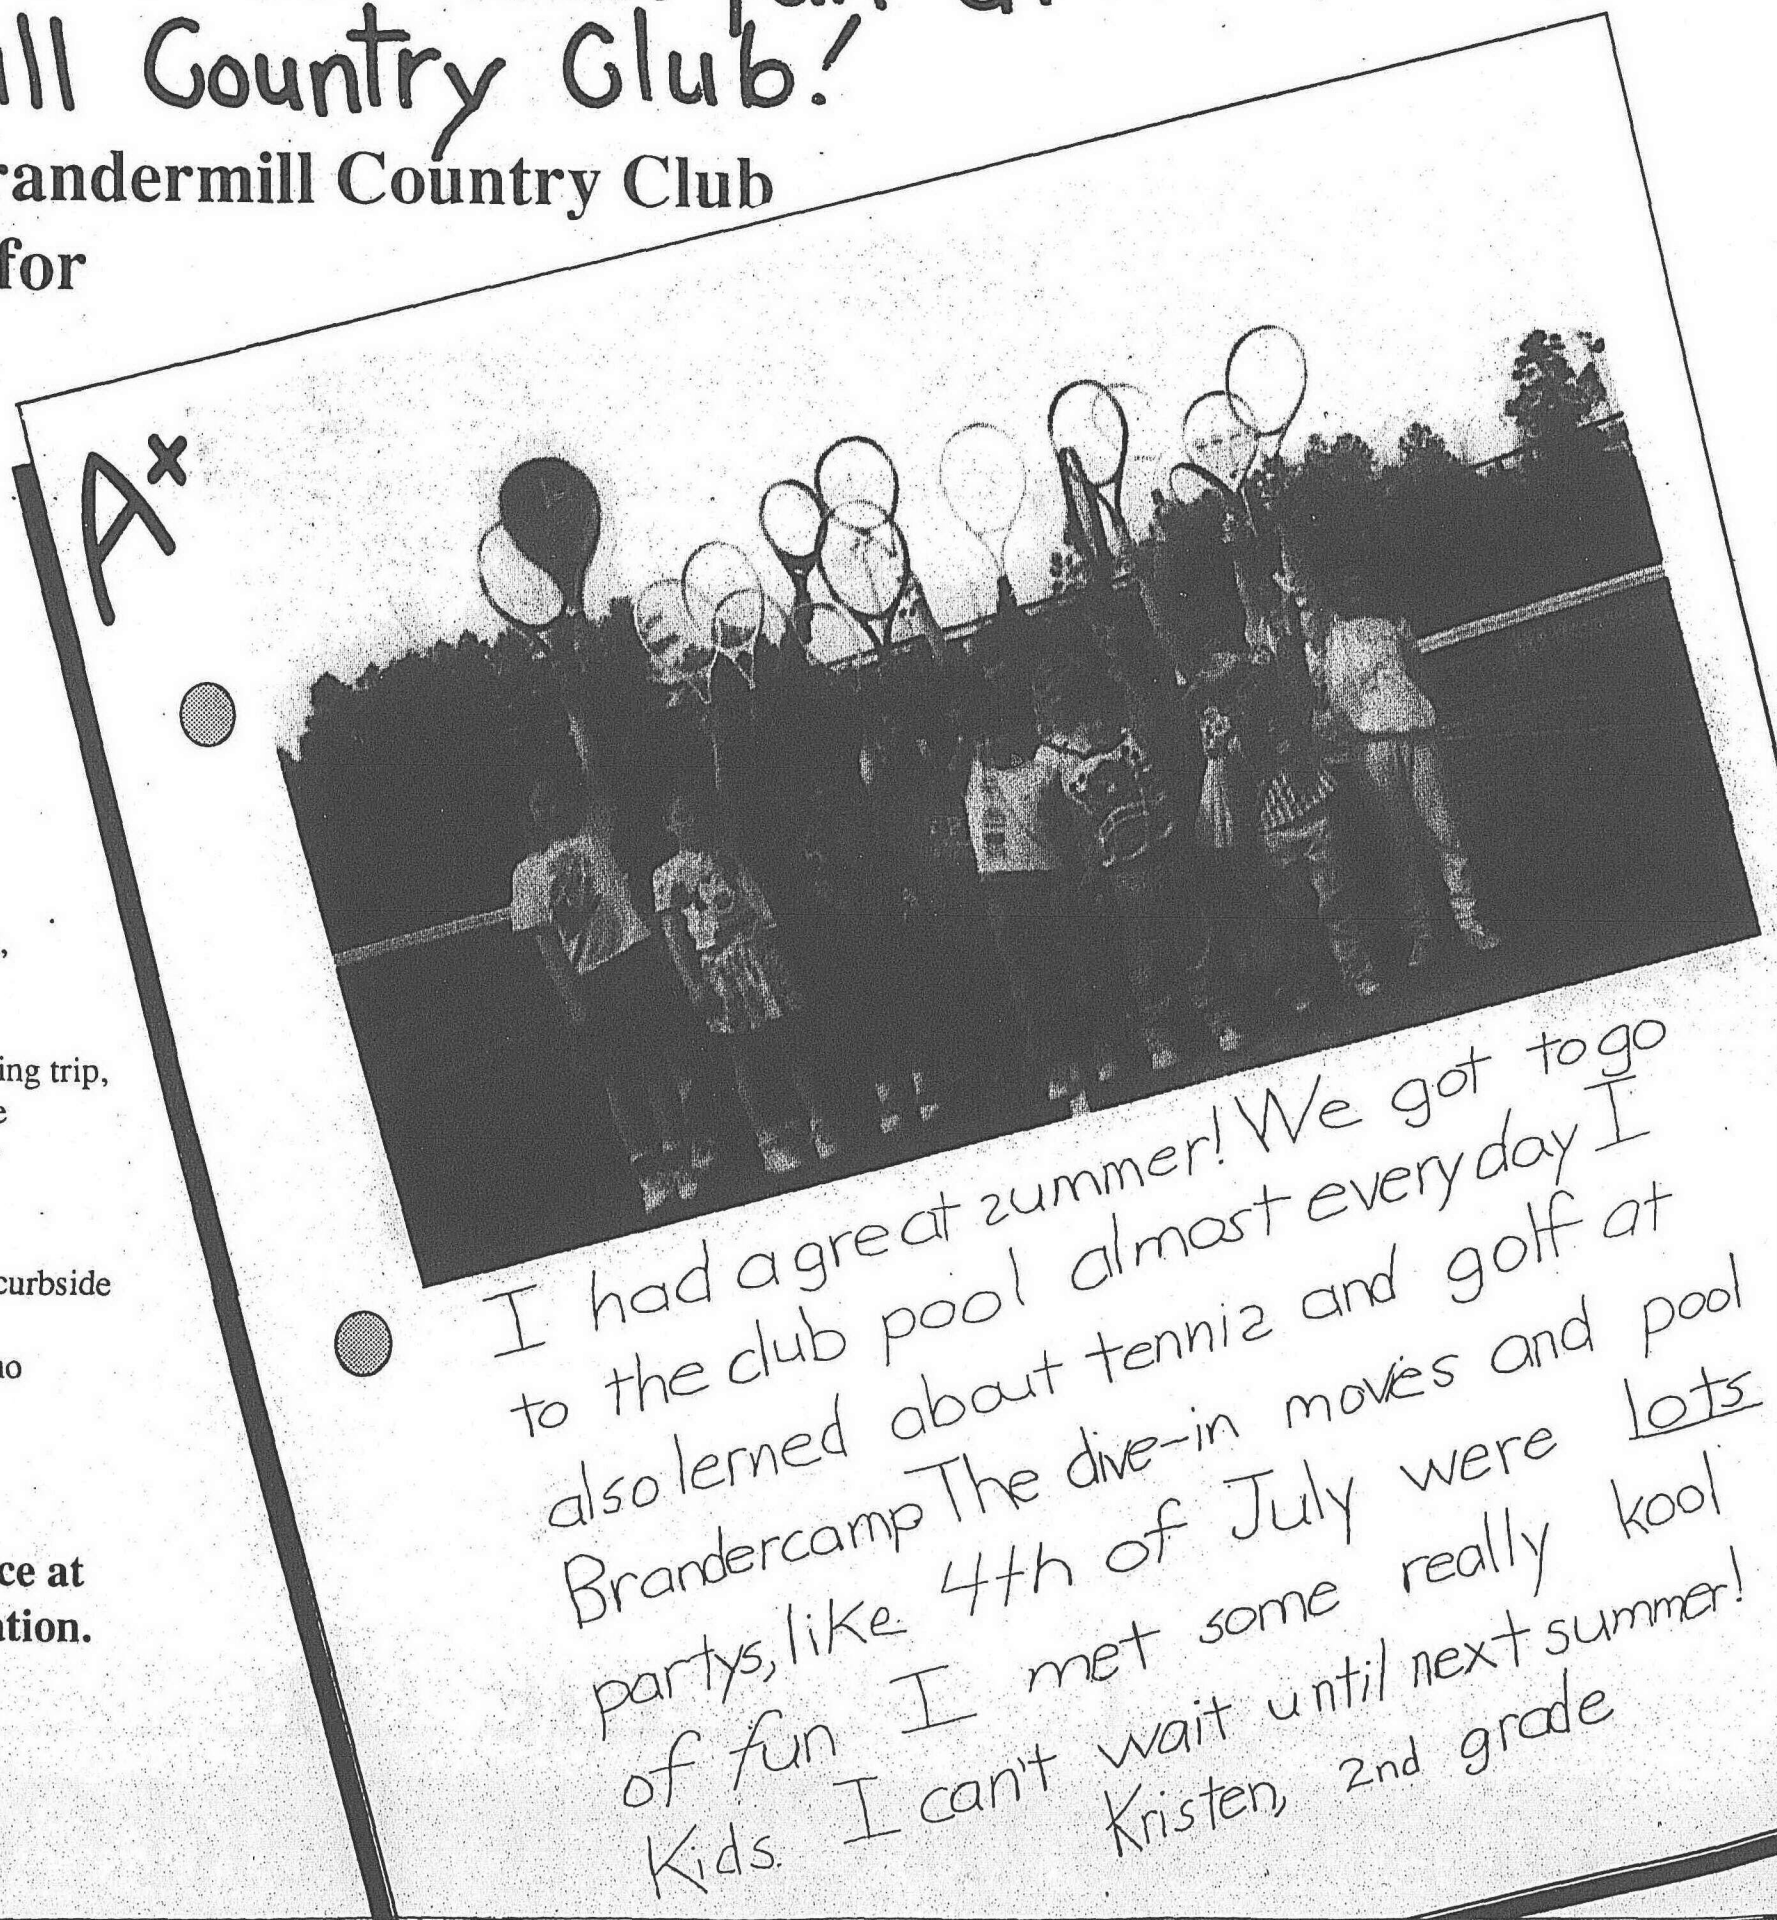 Country Club!
randermill Country Club
for
A+
ing trip,
e
curbside
ce at
ation.
I had a great zummer! We got to go
to the club pool almost everyday I
also lerned about tenniz and golf at
Brandercamp The dive-in movies and pool
partys, like 4th of July were lots
of fun I met some really kool
Kids. I can't wait until next summer!
Kristen, 2nd grade